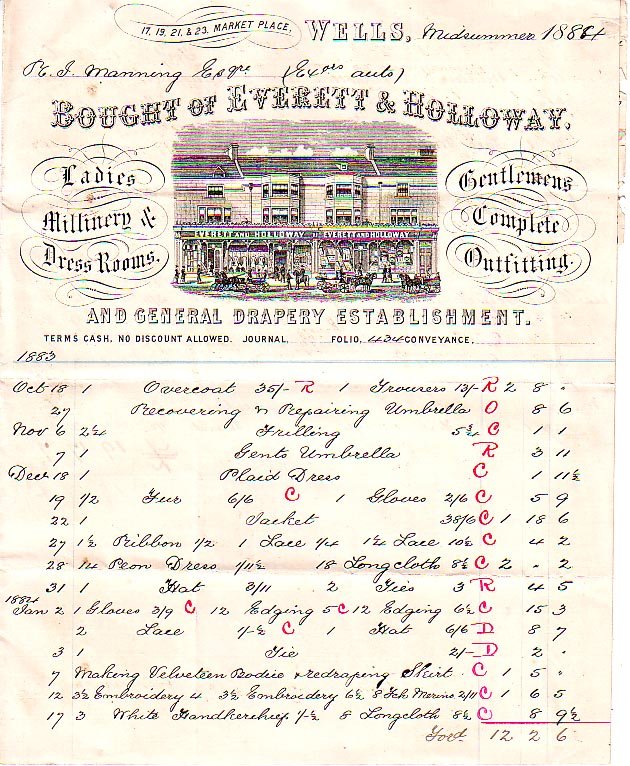 17, 19, 21, & 23, MARKET PLACE,
WELLS, Midsummer 1884
R. J. Manning Esqre (Exors auto)
BOUGHT OF EVERETT & HOLLOWAY.
Ladies Millinery & Dress Rooms.
EVERETT AND HOLLOWAY EVERETT AND HOLLOWAY
Gentlemens Complete Outfitting.
AND GENERAL DRAPERY ESTABLISHMENT.
TERMS CASH. NO DISCOUNT ALLOWED. JOURNAL, FOLIO, 434 CONVEYANCE,
1883
Oct 18 1 Overcoat 35/- R 1 Trousers 13/- R 2 8 "
27 Recovering & Repairing Umbrella O 8 6
Nov 6 2¼ Frilling 5¾ C 1 1
7 1 Gents Umbrella R 3 11
Dec 18 1 Plaid Dress C 1 11½
19 1/2 Fur 6/6 C 1 Gloves 2/6 C 5 9
22 1 Jacket 38/6 C 1 18 6
27 1½ Ribbon 1/2 1 Lace 1/4 1¼ Lace 10½ C 4 2
28 14 Dress 1/11½ 18 Longcloth 8½ C 2 " 2
31 1 Hat 3/11 2 Ties 3 R 4 5
1884
Jan 2 1 Gloves 3/9 C 12 Edging 5 C 12 Edging 6½ C 15 3
2 Lace 1/-½ C 1 Hat 6/6 D 8 7
3 1 Tie 2/- D 2 "
7 Making Velveteen Bodice & redraping Skirt C 1 5 "
12 3½ Embroidery 4 3½ Embroidery 6½ 8 Fch Merino 2/11 C 1 6 5
17 3 White Handkerchief 1/-½ 8 Longcloth 8½ C 8 9½
Ford 12 2 6